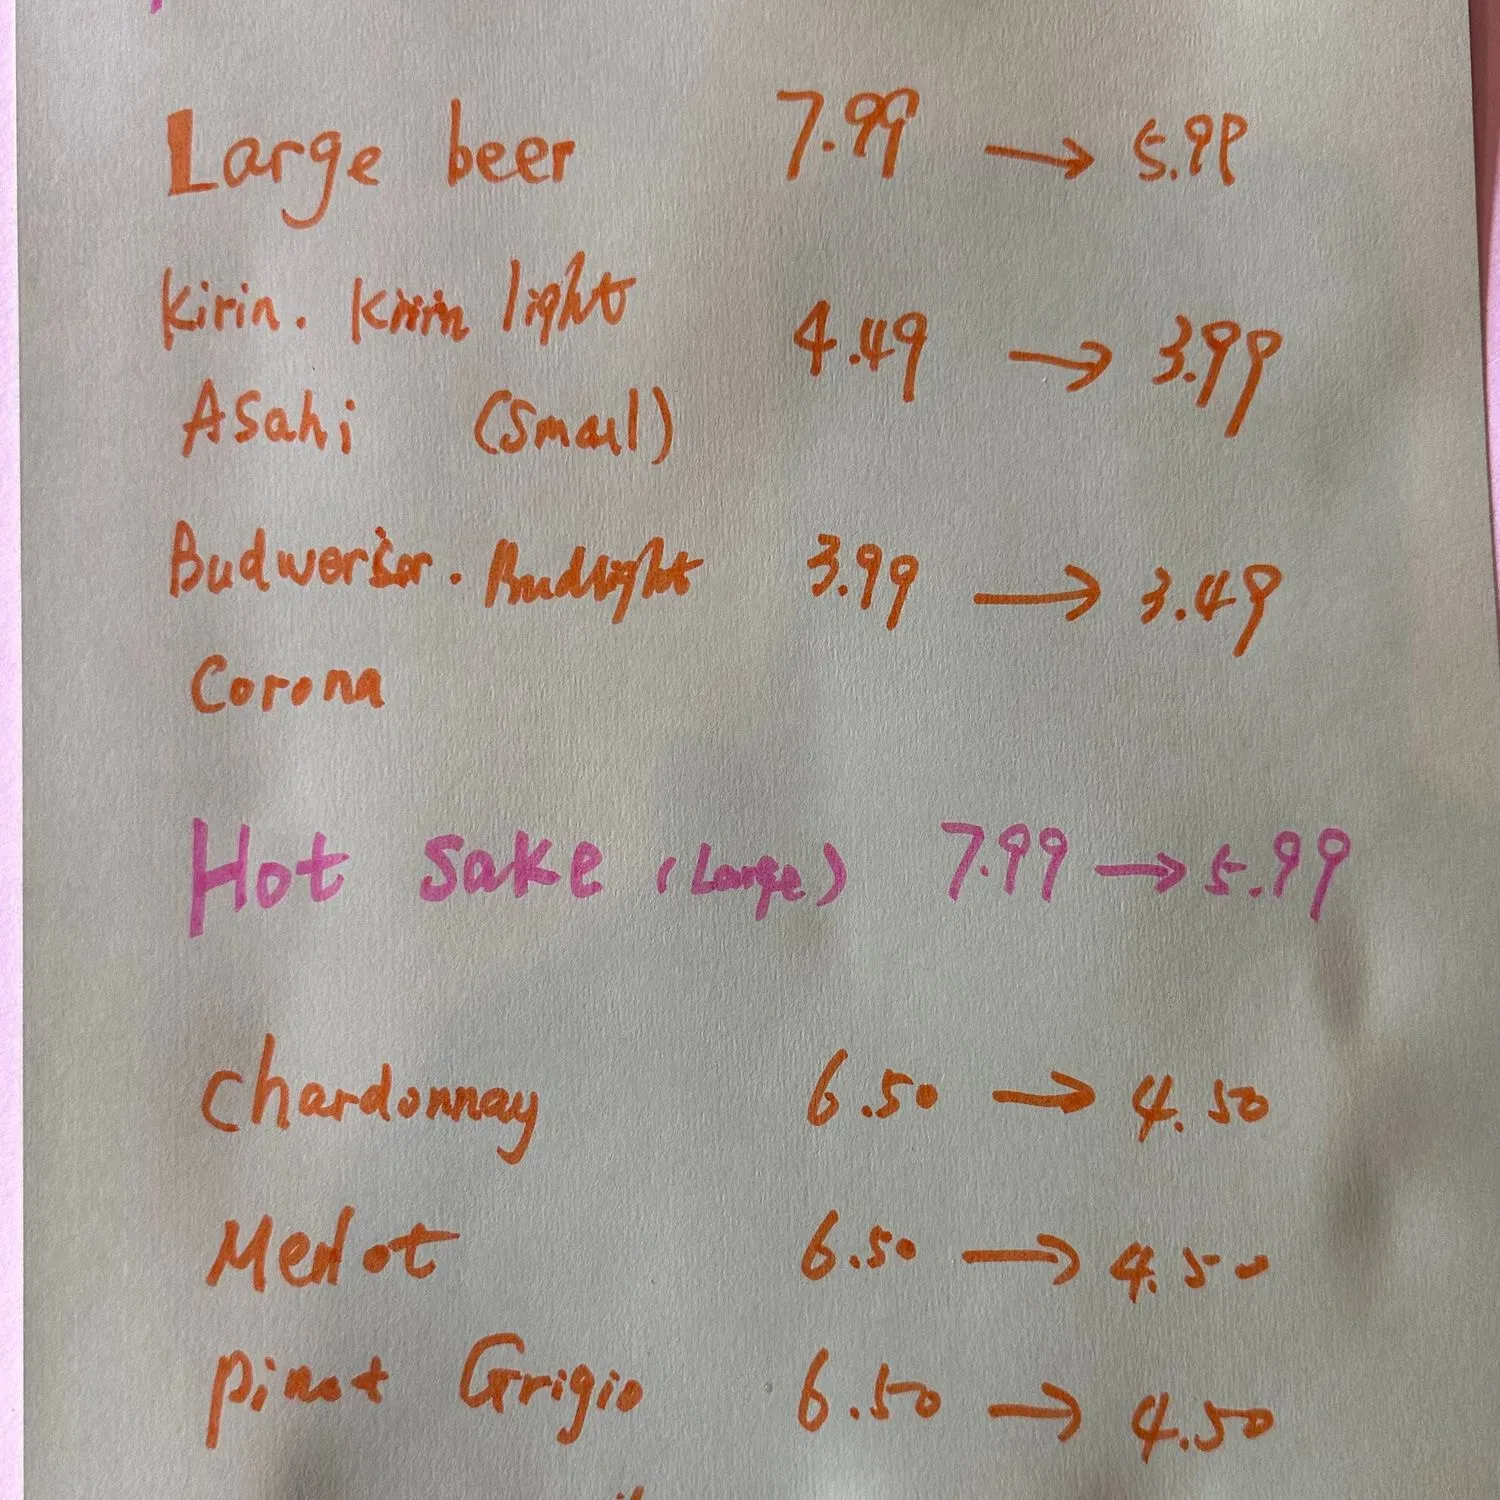 Large beer 7.99 → 5.99
Kirin. Kirin light
4.49 → 3.99
Asahi (Small)
Budworser. Budlight 3.99 → 3.49
Corona
Hot sake (Large) 7.99 → 5.99
Chardonnay 6.50 → 4.50
Merlot 6.50 → 4.50
Pinot Grigio 6.50 → 4.50